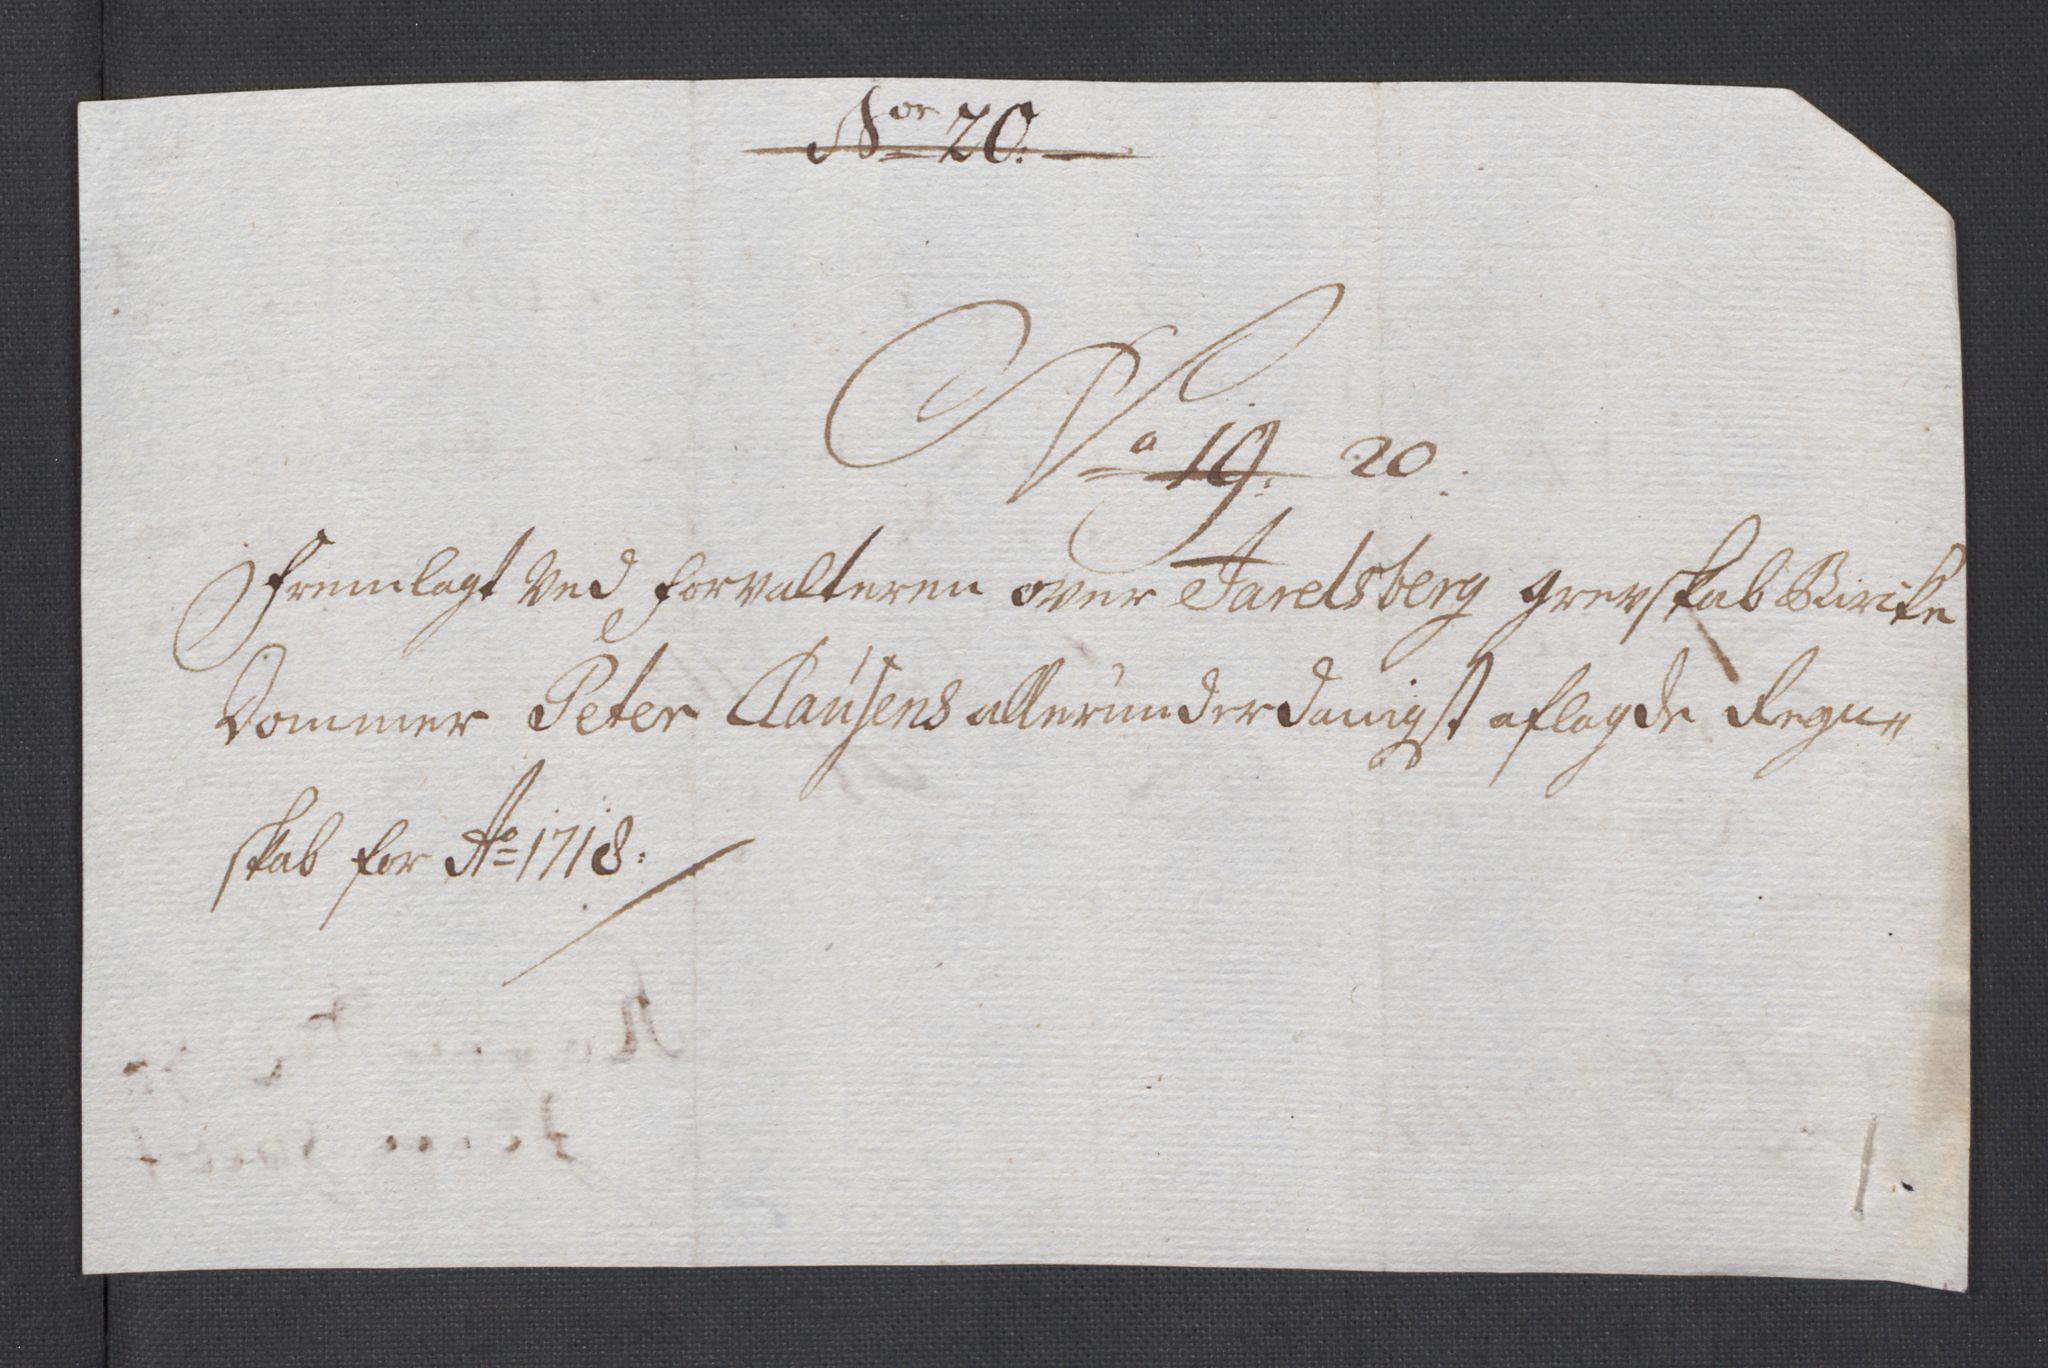 Nor 20.
No 19. 20.
Fremlagt Ved Forvalteren over Jarelsberg grevskab Birke
Dommer Peter Clausens allerunderdanigst aflagde Regn-
skab for Ao 1718.